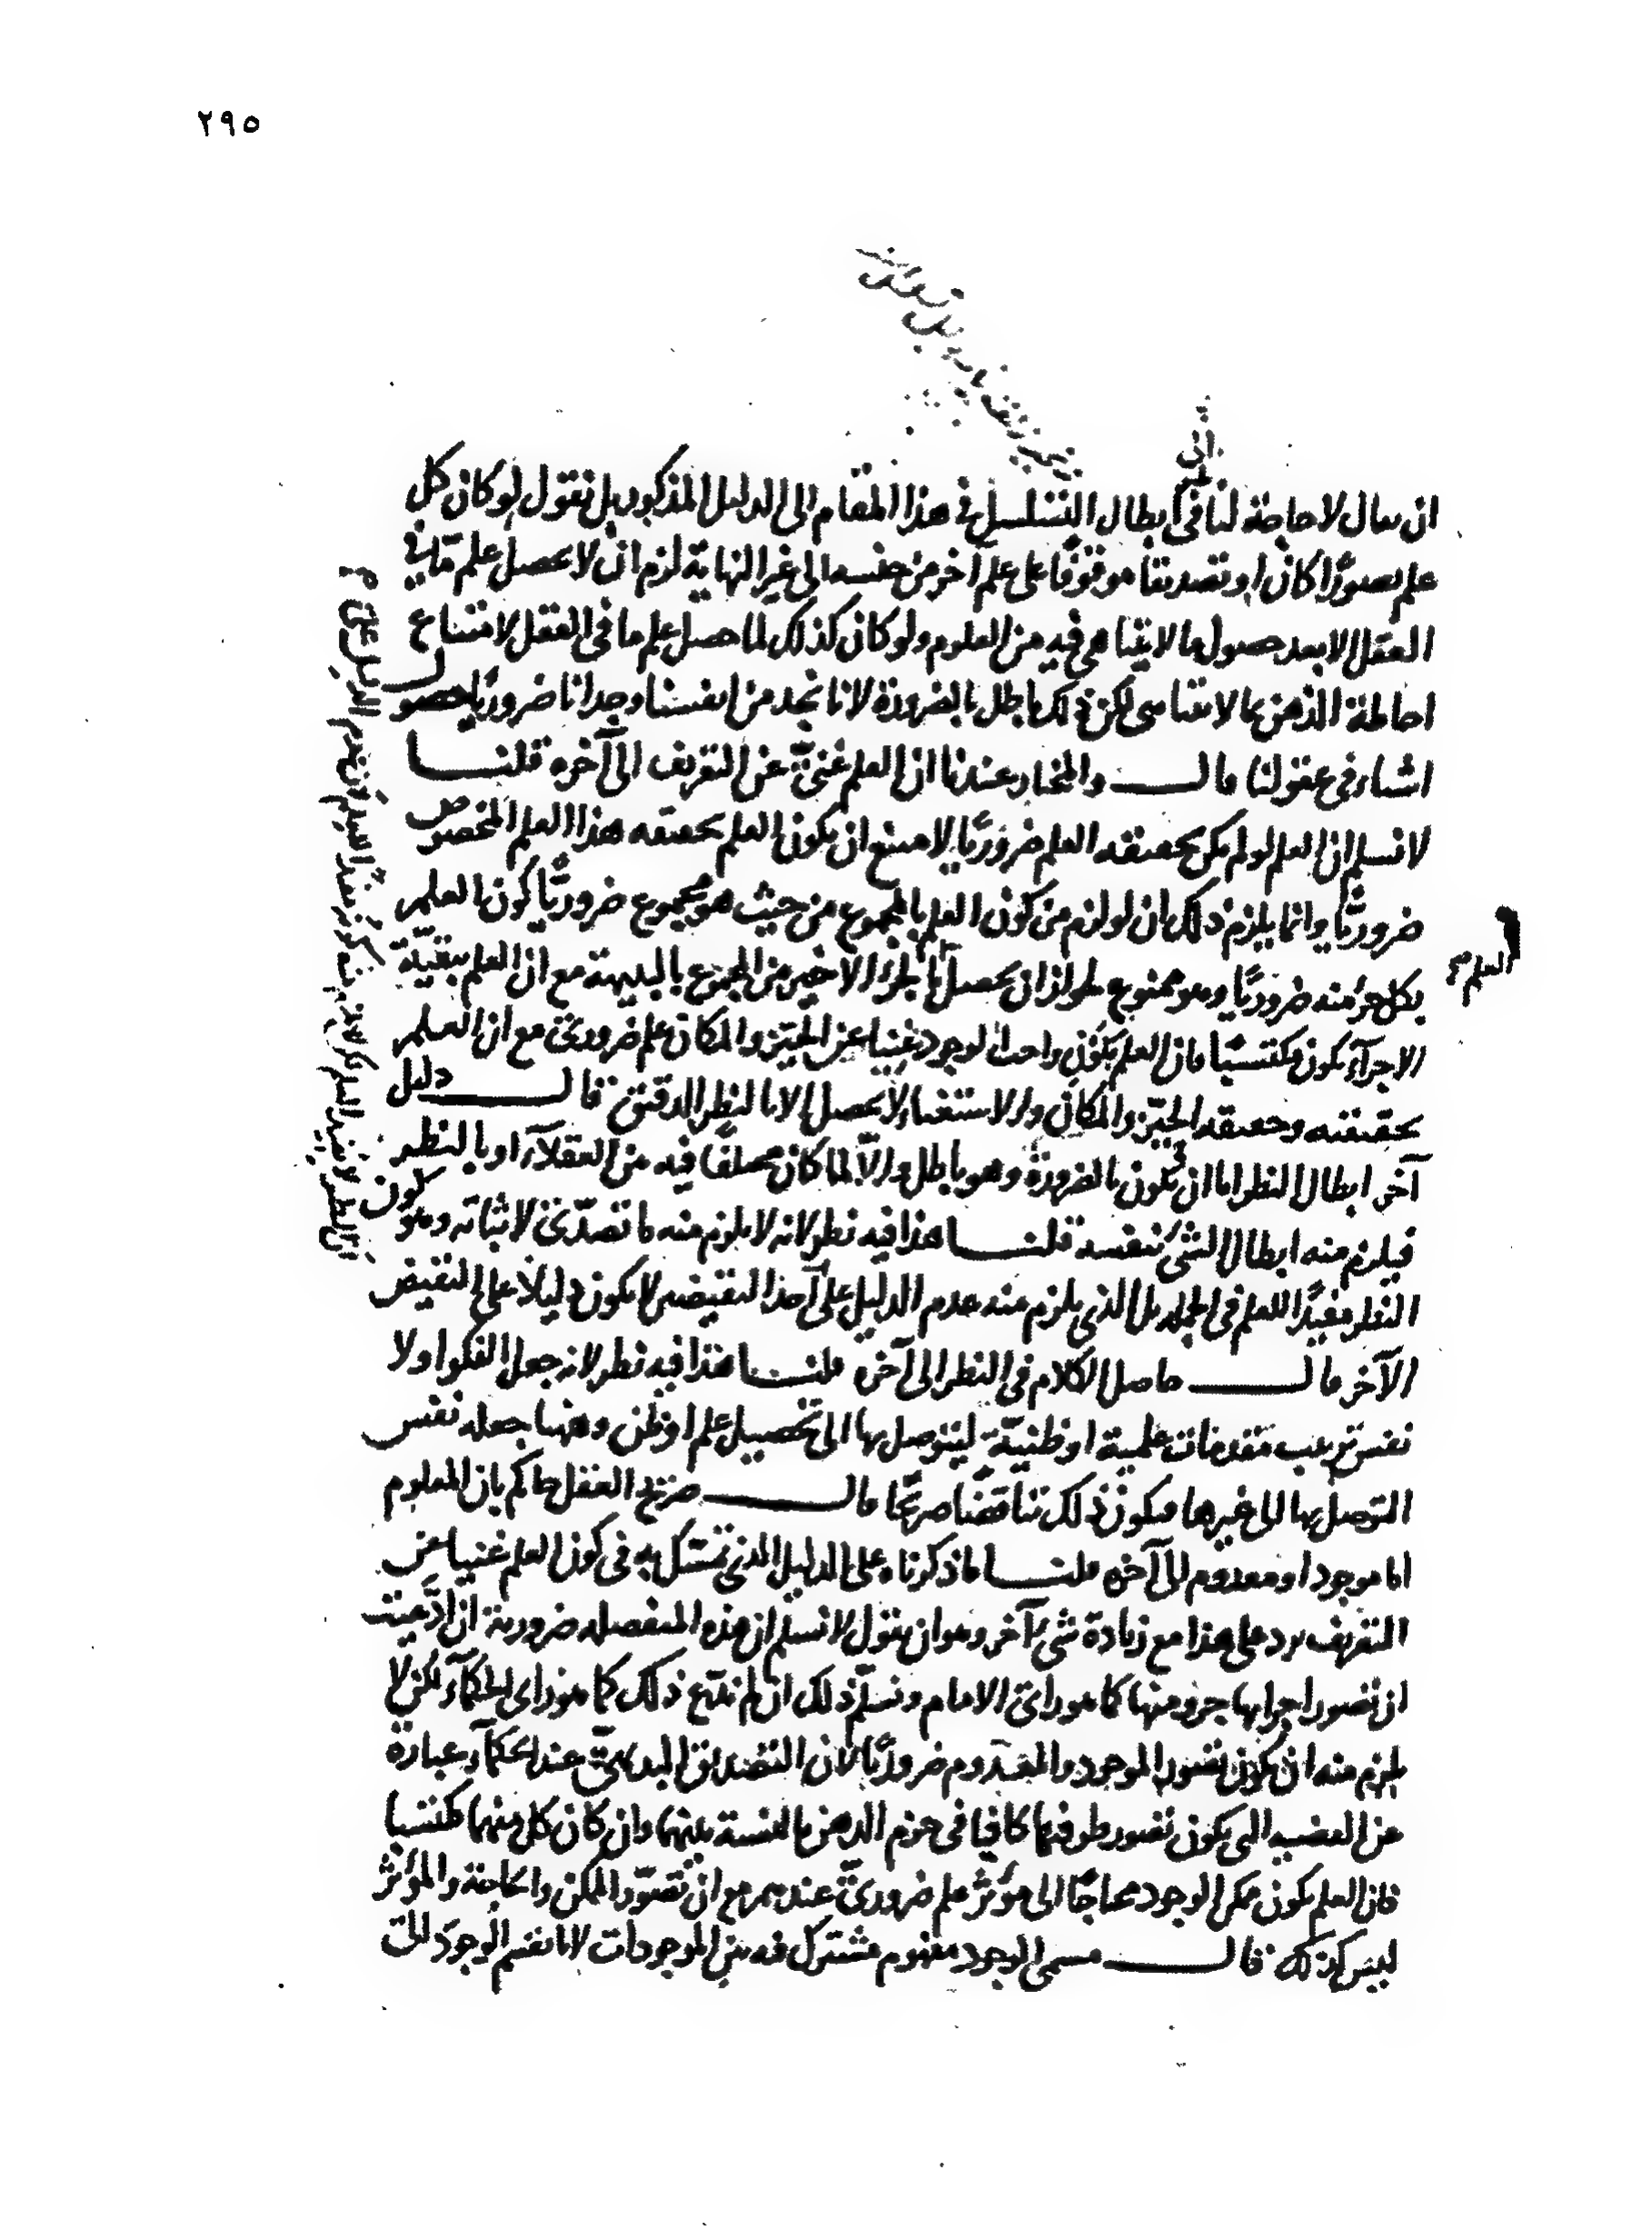 ٢٩٥
ان يقال لا حاجة لنا في ابطال التسلسل في هذا المقام الى الدليل المذكور بل نقول لو كان كل
علم تصورًا كان او تصديقا موقوفًا على علم آخر من جنسه الى غير النهاية لزم ان لا يحصل علم ما في
العقل الا بعد حصول ما لا يتناهى فيه من العلوم ولو كان كذلك لما حصل علم ما في العقل لامتناع
احاطة الذهن بما لا يتناهى لكن ذلك باطل بالضرورة لانا نجد من انفسنا وجدانا ضروريًا حصول
اشياء في عقولنا قال والمختار عندنا ان العلم غنيّ عن التعريف الى آخره قلنا
لا نسلم ان العلم لو لم يكن بحقيقة العلم ضروريًا لامتنع ان يكون العلم بحقيقة هذا العلم المخصوص
ضروريًّا وانما يلزم ذلك ان لو لزم من كون العلم بالمجموع من حيث هو مجموع ضروريًّا كون العلم
بكل جزء منه ضروريًا وهو ممنوع لجواز ان يحصل بالجزء الاخير من المجموع بالبديهة مع ان العلم ببقيّة
العلم
الاجزآء يكون مكتسبًا فان العلم بكون واجب الوجود غنيا عن الحيّز والمكان علم ضروريّ مع ان العلم
بحقيقته وحقيقة الحيّز والمكان والاستغناء لا يحصل الا بالنظر الدقيق قال دليل
آخر ابطال النظر اما ان يكون بالضرورة وهو باطل والّا لما كان مختلفًا فيه من العقلآء او بالنظر
فيلزم منه ابطال الشيء بنفسه قلنا هذا فيه نظر لانه لا يلزم منه ما تصدّى لاثباته وهو كون
النظر مفيدًا للعلم في الجملة بل الذي يلزم منه عدم الدليل على احد النقيضين لا يكون دليلًا على النقيض
الآخر قال حاصل الكلام في النظر الى آخره قلنا هذا فيه نظر لانه جعل الفكر اولا
نفس ترتيب مقدمات علمية او ظنيّة ليتوصل بها الى تحصيل علم او ظن وههنا جعله نفس
التوصل بها الى غيرها فيكون ذلك تناقضًا صريحًا قال صريح العقل حاكم بان المعلوم
اما موجود او معدوم الى آخره قلنا ما ذكرناه على الدليل الذي تمسّك به في كون العلم غنيا عن
التعريف يرد على هذا مع زيادة شيء آخر وهو ان يقول لا نسلم ان هذه المنفصلة ضرورية ان ادّعيت
ان تصور اجزايها جزو منها كما هو راى الامام ونسلّم ذلك ان لم تدّع ذلك كما هو راى الحكمآء لكن لا
يلزم منه ان يكون تصور الموجود والمعدوم ضروريًا لان التصديق البديهىّ عند الحكمآء عبارة
عن القضية التي يكون تصور طرفيها كافيا في جزم الذهن بالنسبة بينهما وان كان كل منهما مكتسبا
فان العلم بكون ممكن الوجود محتاجًا الى مؤثر علم ضروريّ عندهم مع ان تصوّر الممكن والحاجة والمؤثر
ليس كذلك قال مسمى الوجود مفهوم مشترك فيه بين الموجودات لانا نقسم الوجود الى